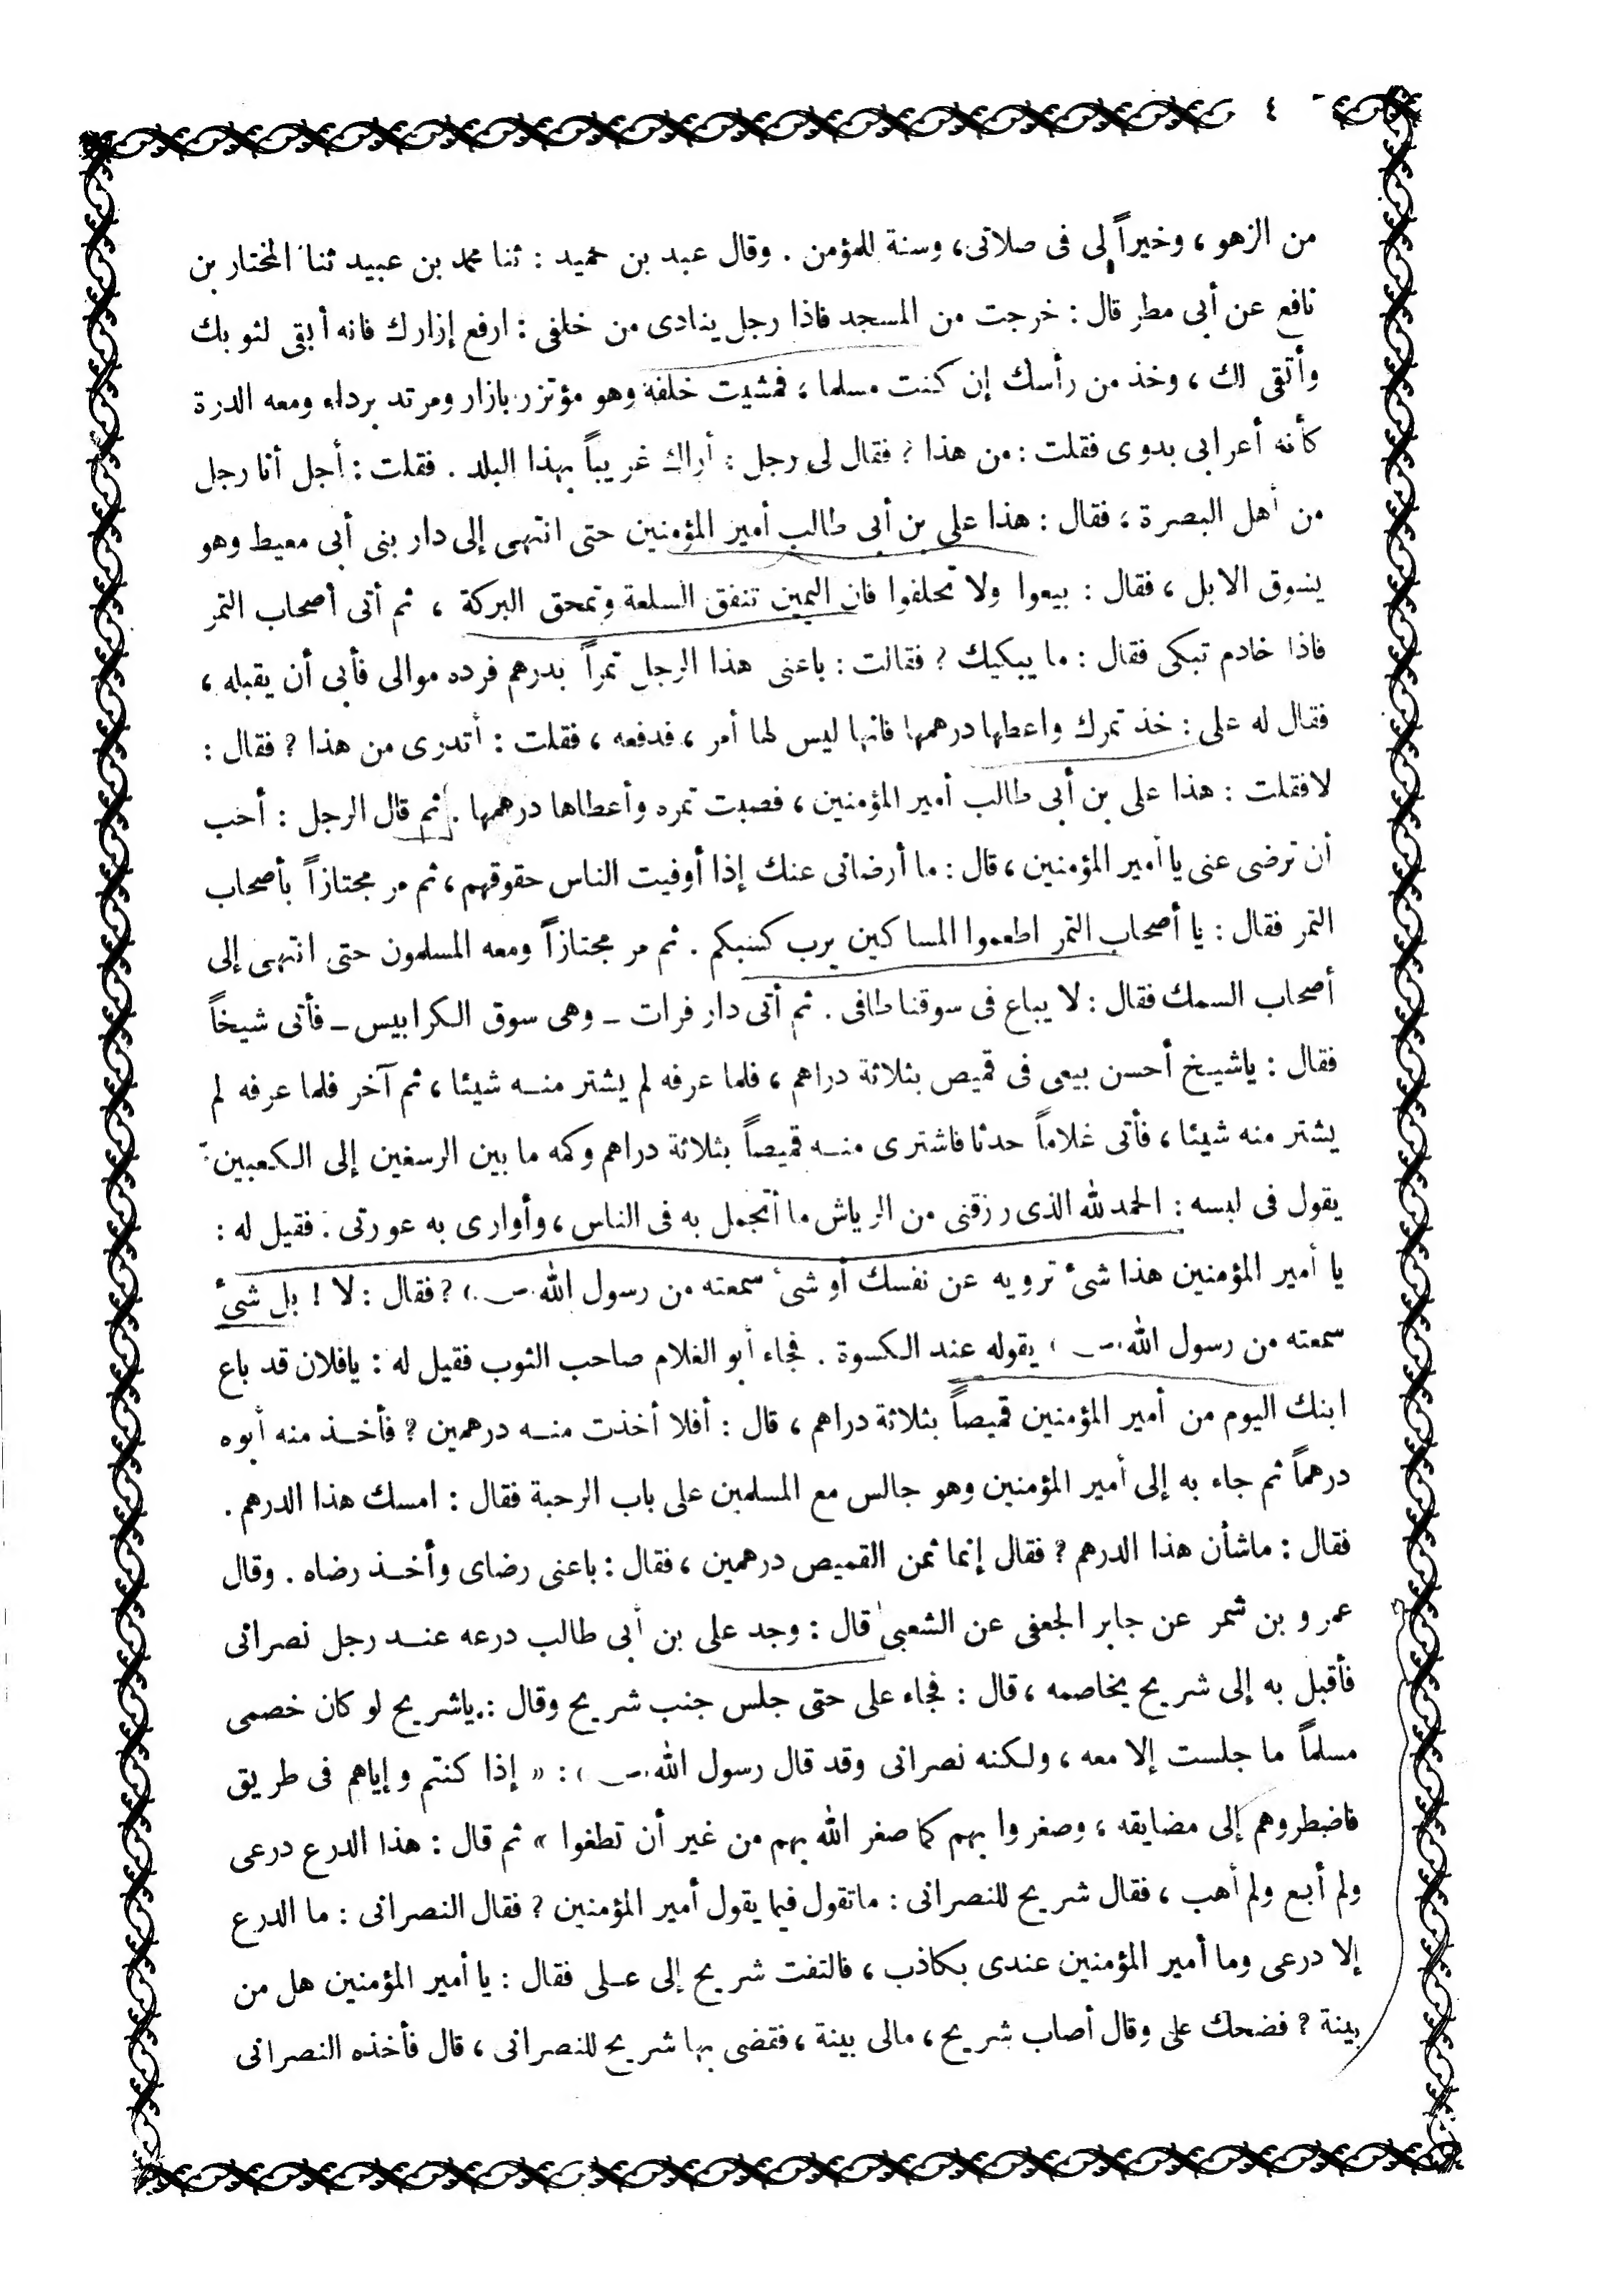 ٤
من الزهو ، وخيراً لى فى صلاتى، وسنة للمؤمن . وقال عبد بن حميد : ثنا محمد بن عبيد ثنا المختار بن
نافع عن أبى مطر قال : خرجت من المسجد فاذا رجل ينادى من خلفى : ارفع إزارك فانه أبقى لثوبك
وأتقى لك ، وخذ من رأسك إن كنت مسلما ، فمشيت خلفه وهو مؤتزر بازار ومرتد برداء ومعه الدرة
كأنه أعرابى بدوى فقلت : من هذا ? فقال لى رجل : أراك غريباً بهذا البلد . فقلت : أجل أنا رجل
من أهل البصرة ، فقال : هذا على بن أبى طالب أمير المؤمنين حتى انتهى إلى دار بنى أبى معيط وهو
يسوق الابل ، فقال : بيعوا ولا تحلفوا فان اليمين تنفق السلعة وتمحق البركة ، ثم أتى أصحاب التمر
فاذا خادم تبكى فقال : ما يبكيك ? فقالت : باعنى هذا الرجل تمراً بدرهم فرده موالى فأبى أن يقبله ،
فقال له على : خذ تمرك واعطها درهمها فانها ليس لها أمر ، فدفعه ، فقلت : أتدرى من هذا ? فقال :
لا فقلت : هذا على بن أبى طالب أمير المؤمنين ، فصبت تمره وأعطاها درهمها . ثم قال الرجل : أحب
أن ترضى عنى يا أمير المؤمنين ، قال : ما أرضانى عنك إذا أوفيت الناس حقوقهم ، ثم مر مجتازاً بأصحاب
التمر فقال : يا أصحاب التمر اطعموا المساكين يرب كسبكم . ثم مر مجتازاً ومعه المسلمون حتى انتهى إلى
أصحاب السمك فقال : لا يباع فى سوقنا طافى . ثم أتى دار فرات ــ وهى سوق الكرابيس ــ فأتى شيخاً
فقال : ياشيخ أحسن بيعى فى قميص بثلاثة دراهم ، فلما عرفه لم يشتر منه شيئا ، ثم آخر فلما عرفه لم
يشتر منه شيئا ، فأتى غلاماً حدثا فاشترى منه قميصاً بثلاثة دراهم وكمه ما بين الرسغين إلى الكعبين
يقول فى لبسه : الحمد لله الذى رزقنى من الرياش ما أتجمل به فى الناس ، وأوارى به عورتى . فقيل له :
يا أمير المؤمنين هذا شئ ترويه عن نفسك أو شئ سمعته من رسول الله (ص) ? فقال : لا ! بل شئ
سمعته من رسول الله (ص) يقوله عند الكسوة . فجاء أبو الغلام صاحب الثوب فقيل له : يافلان قد باع
ابنك اليوم من أمير المؤمنين قميصاً بثلاثة دراهم ، قال : أفلا أخذت منه درهمين ? فأخذ منه أبوه
درهماً ثم جاء به إلى أمير المؤمنين وهو جالس مع المسلمين على باب الرحبة فقال : امسك هذا الدرهم .
فقال : ماشأن هذا الدرهم ? فقال إنما ثمن القميص درهمين ، فقال : باعنى رضاى وأخذ رضاه . وقال
عمرو بن شمر عن جابر الجعفى عن الشعبى قال : وجد على بن أبى طالب درعه عند رجل نصرانى
فأقبل به إلى شريح يخاصمه ، قال : فجاء على حتى جلس جنب شريح وقال : ياشريح لو كان خصمى
مسلماً ما جلست إلا معه ، ولكنه نصرانى وقد قال رسول الله (ص) : « إذا كنتم وإياهم فى طريق
فاضطروهم إلى مضايقه ، وصغروا بهم كما صغر الله بهم من غير أن تطغوا » ثم قال : هذا الدرع درعى
ولم أبع ولم أهب ، فقال شريح للنصرانى : ماتقول فيما يقول أمير المؤمنين ? فقال النصرانى : ما الدرع
إلا درعى وما أمير المؤمنين عندى بكاذب ، فالتفت شريح إلى على فقال : يا أمير المؤمنين هل من
بينة ? فضحك على وقال أصاب شريح ، مالى بينة ، فقضى بها شريح للنصرانى ، قال فأخذه النصرانى